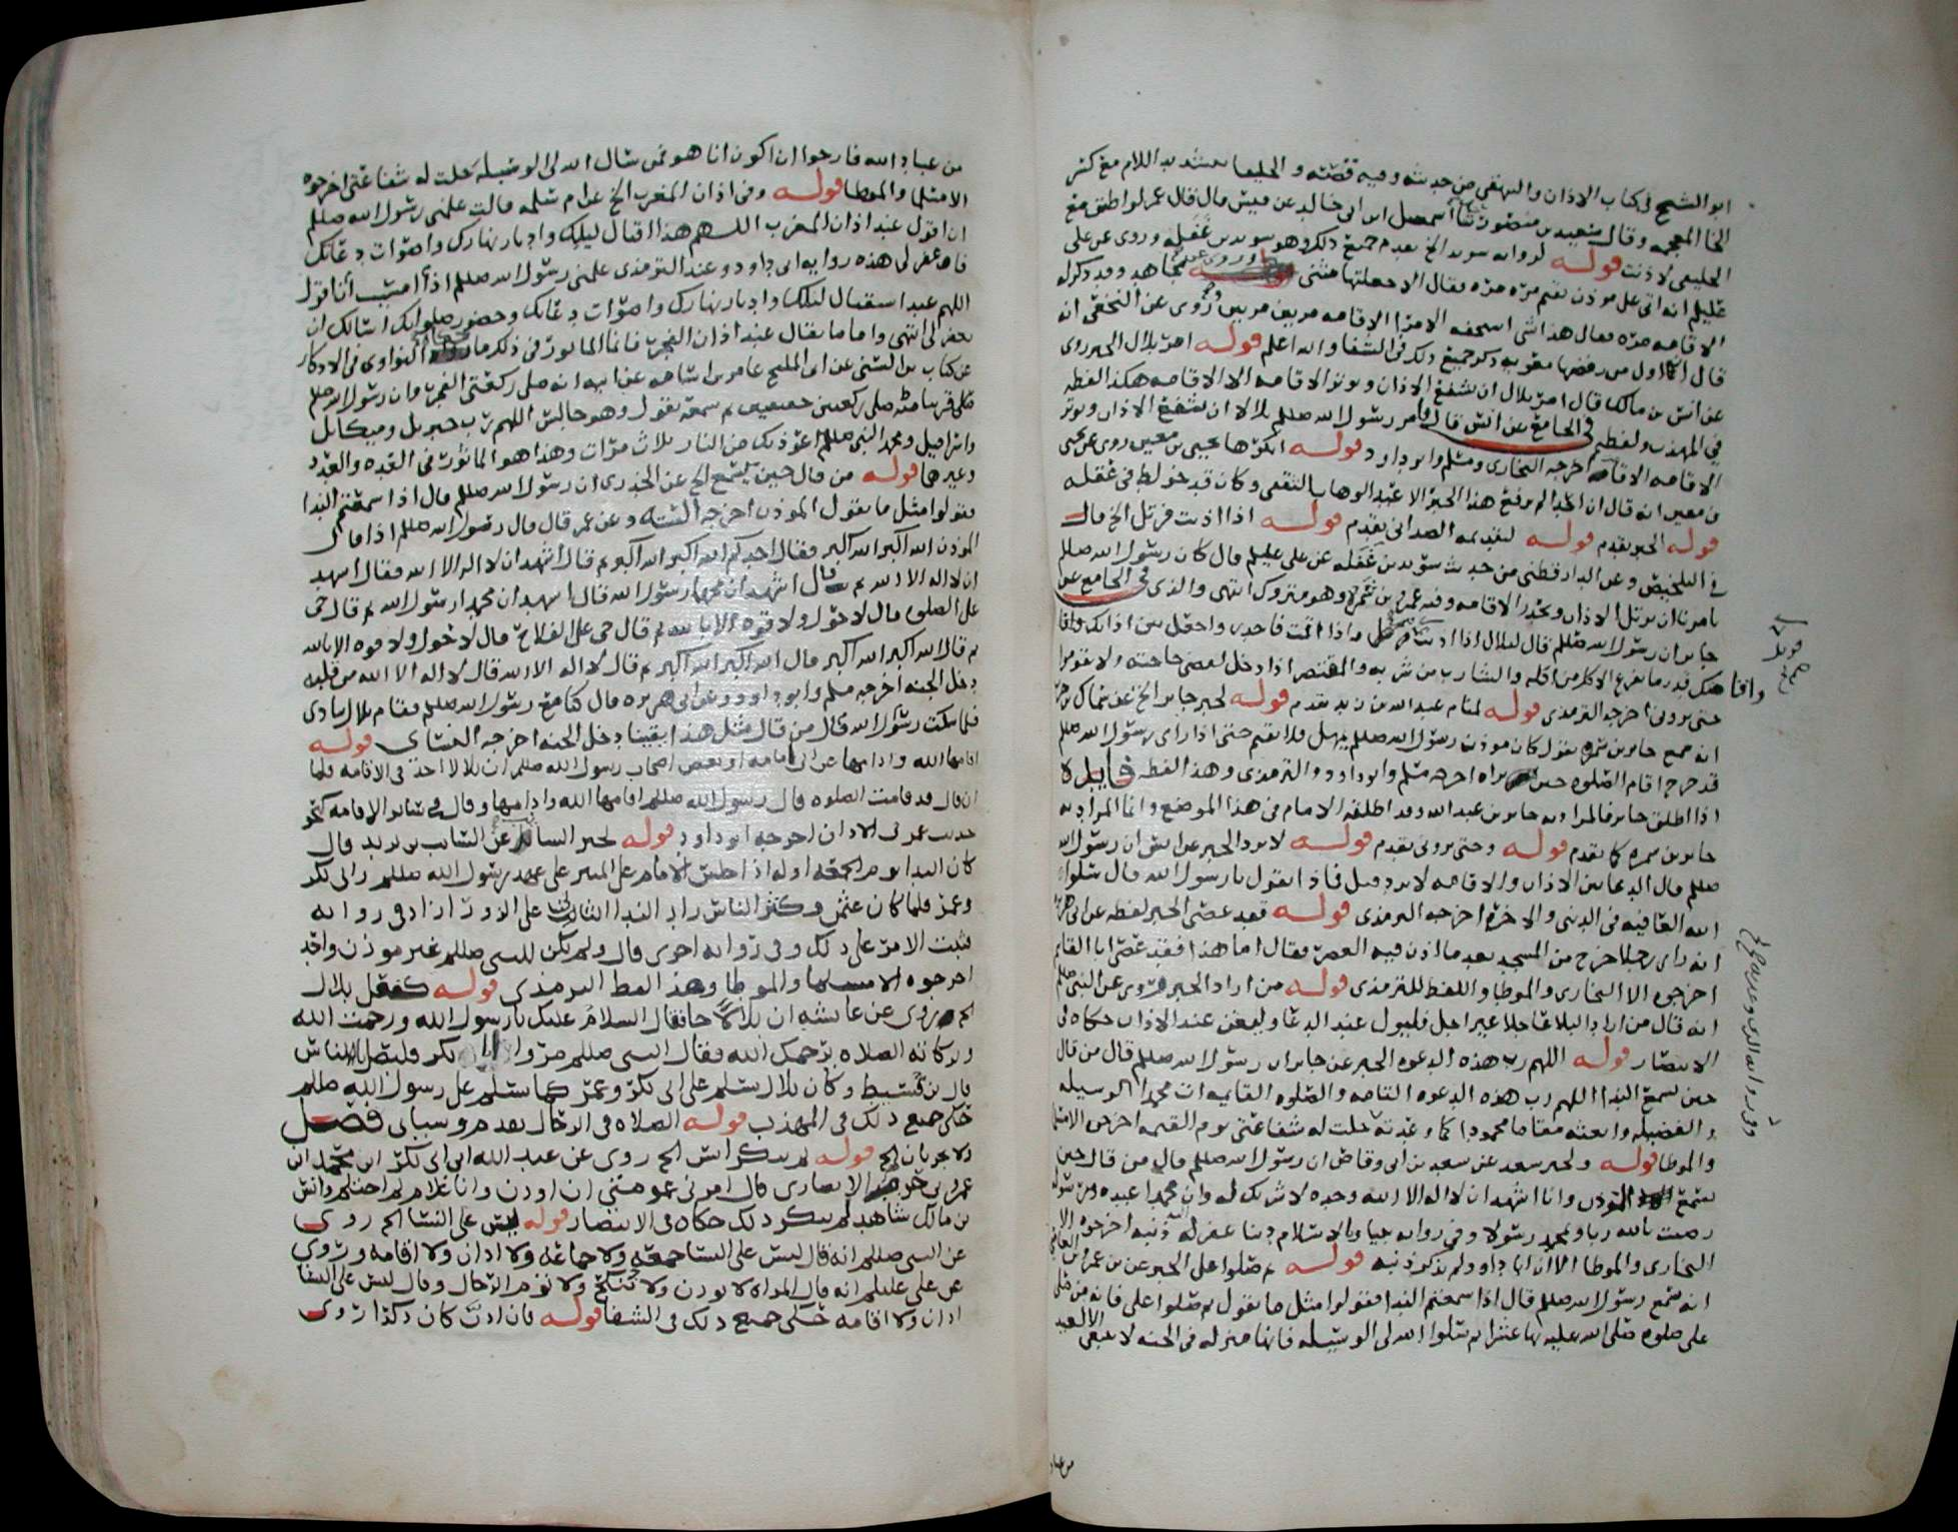 ابو الشيخ في كتاب الاذان والبيهقي من حديثه وفيه قصّته و الحليفا بتشديد اللام مع كسر
الخا المعجمه وقال سعيد بن منصور ثنا اسمعيل ابن ابي خالد عن قيس قال قال عمر لو اطيق مع
الخليفى لاذنت قوله لروايه سويد الخ تقدم جميع ذلك وهو سويد بن غفله وروى عن علي
عليلم انه اتى على موذن يقيم مره مره فقال الا جعلتها مثنى مجاهد وقد ذكر له
الاقامه مره فقال هذا شي استخفه الامرا الاقامه مرتين مرتين وروى عن النخعي انه
قال اول من نقضها معويه ذكر جميع ذلك في الشفا والله اعلم قوله امر بلال الخبر روى
عن انس بن مالك قال امر بلال ان يشفع الاذان ويوتر الاقامه الا الاقامه هكذا لفظه
في المهذب ولفظه في الجامع عن انس قال وامر رسول الله صللم بلالا ان يشفع الاذان ويوتر
الاقامه الا الاقامه اخرجه البخاري ومسلم وابو داود قوله انكرها يحيى بن معين روى عن يحيى
بن معين انه قال ان احدا لم يرفع هذا الخبر الا عبد الوهاب الثقفي وكان قد خولط في عقله
قوله الخبر يقدم قوله لتقديمه الصداني يقدم قوله اذا اذنت فرتل الخ قال
في التلخيص وعن الدارقطني من حديث سويد بن غفله عن علي عليلم قال كان رسول الله صللم
يامرنا ان نرتل الاذان ونحدر الاقامه وفيه عمرو بن شمر وهو متروك انتهى والذي في الجامع عن
جابر ان رسول الله صللم قال لبلال اذا اذنت فترسل واذا اقمت فاحدر واجعل بين اذانك واقا
واقامتك قدر ما يفرغ الاكل من اكله والشارب من شربه والمقتصر اذا دخل لقضى حاجته ولا تقوموا
حتى تروني اخرجه الترمذي قوله لمنام عبد الله بن زيد تقدم قوله لخبر جابر الخ عن سماك بن حرب
انه سمع جابر بن سمره يقول كان موذن رسول الله صللم يمهل فلا يقيم حتى اذا راى رسول الله صللم
قد خرج اقام الصلوه حين يراه اخرجه مسلم وابو داود والترمذي وهذا لفظه فايده
اذا اطلق جابر فالمراد به جابر بن عبد الله وقد اطلقه الامام في هذا الموضع وانما المراد به
جابر بن سمره كما تقدم قوله وحتى تروني تقدم قوله لا يرد الخبر عن انس ان رسول الله
صللم قال الدعا بين الاذان والاقامه لا يرد قيل فماذا نقول يا رسول الله قال سلوا
الله العافيه في الدنيا والاخره اخرجه الترمذي قوله فقد عصى الخبر لفظه عن ابي هريره
انه راى رجلا خرج من المسجد بعد ما اذن فيه العصر فقال اما هذا فقد عصى ابا القاسم
اخرجوه الا البخاري والموطا واللفظ للترمذي قوله من اراد الخبر روى عن النبي صللم
انه قال من اراد البلاغا جلا غير اجل فليبول عند الدعا وليغن عند الاذان حكاه في
الانتصار قوله اللهم رب هذه الدعوه الخبر عن جابر ان رسول الله صللم قال من قال
حين يسمع الندا اللهم رب هذه الدعوه التامه والصلوه القايمه ات محمدا الوسيله
والفضيله وابعثه مقاما محمودا كما وعدته حلت له شفاعتي يوم القيمه اخرجه الا مسلما
والموطا قوله ولخبر سعد عن سعد بن ابي وقاص ان رسول الله صللم قال من قال حين
يسمع الموذن وانا اشهد ان لا اله الا الله وحده لا شريك له وان محمدا عبده ورسوله
رضيت بالله ربا وبمحمد رسولا وفي روايه نبيا وبالاسلام دينا غفر له ذنبه اخرجوه الا
البخاري والموطا الا ان ابا داود لم يذكر ذنبه قوله ثم صلوا على الخبر عن بن عمرو بن العاص
انه سمع رسول الله صللم قال اذا سمعتم الندا فقولوا مثل ما يقول ثم صلوا علي فانه من صلى
علي صلوه صلى الله عليه بها عشرا ثم سلوا الله لي الوسيله فانها منزله في الجنه لا تنبغي الا لعبد
من عباد
من عباد الله فارجوا ان اكون انا هو فمن سال الله لي الوسيله حلت له شفاعتي اخرجوه
الا مسلما والموطا قوله وفي اذان المغرب الخ عن ام سلمه قالت علمني رسول الله صللم
ان اقول عند اذان المغرب اللهم هذا اقبال ليلك وادبار نهارك واصوات دعاتك
فاغفر لي هذه روايه ابي داود وعند الترمذي علمني رسول الله صللم اذا امسيت ان اقول
اللهم عند استقبال ليلك وادبار نهارك واصوات دعاتك وحضور صلواتك اسالك ان
تغفر لي انتهى واما ما يقال عند اذان الفجر فانما الماثور في ذلك ما رواه النواوي في الاذكار
عن كتاب بن السني عن ابي المليح عامر بن اسامه عن ابيه انه صلى ركعتي الفجر وان رسول الله صللم
صلى قريبا منه صلى ركعتين خفيفتين ثم سمعه يقول وهو جالس اللهم رب جبريل وميكايل
واسرافيل ومحمد النبي صللم اعوذ بك من النار ثلاث مرات وهذا هو الماثور في العده والعدد
وغيرها قوله من قال حين يسمع الخ عن الخدري ان رسول الله صللم قال اذا سمعتم الندا
فقولوا مثل ما يقول الموذن اخرجه الستة وعن عمر قال قال رسول الله صللم اذا قال
الموذن الله اكبر الله اكبر فقال احدكم الله اكبر الله اكبر ثم قال اشهد ان لا اله الا الله فقال اشهد
ان لا اله الا الله ثم قال اشهد ان محمدا رسول الله قال اشهد ان محمدا رسول الله ثم قال حي
على الصلوه قال لا حول ولا قوه الا بالله ثم قال حي على الفلاح قال لا حول ولا قوه الا بالله
ثم قال الله اكبر الله اكبر قال الله اكبر الله اكبر ثم قال لا اله الا الله قال لا اله الا الله من قلبه
دخل الجنه اخرجه مسلم وابو داود وعن ابي هريره قال كنا مع رسول الله صللم فقام بلال ينادي
فلما سكت رسول الله قال من قال مثل هذا يقينا دخل الجنه اخرجه النسائي قوله
اقامها الله وادامها عن ابي امامه او بعض اصحاب رسول الله صللم ان بلالا اخذ في الاقامه فلما
ان قال قد قامت الصلوه قال رسول الله صللم اقامها الله وادامها وقال في سائر الاقامه كنحو
حديث عمر في الاذان اخرجه ابو داود قوله لخبر السائب عن السائب بن يزيد قال
كان الندا يوم الجمعه اوله اذا جلس الامام على المنبر على عهد رسول الله صللم وابي بكر
وعمر فلما كان عثمن وكثر الناس زاد الندا الثالث على الزورا زاد في روايه
فثبت الامر على ذلك وفي روايه اخرى قال ولم يكن للنبي صللم غير موذن واحد
اخرجوه الا مسلما والموطا وهذا لفظ الترمذي قوله كفعل بلال
الخ روى عن عايشه ان بلالا جا فقال السلام عليك يا رسول الله ورحمت الله
وبركاته الصلاه يرحمك الله فقال النبي صللم مروا ابا بكر فليصل بالناس
قال بن قسيط وكان بلال يسلم على ابي بكر وعمر كما يسلم على رسول الله صللم
حكى جميع ذلك في المهذب قوله الصلاه في الرحال تقدم وسياتي فصل
ولا يجزيان الخ قوله لم ينكر انس الخ روى عن عبد الله ابن ابي بكر ابن محمد ابن
عمرو بن حزم الانصاري قال امرني عمومتي ان اوذن وانا غلام لم احتلم وانس
بن مالك شاهد لم ينكر ذلك حكاه في الانتصار قوله ليس على النسا الخ روى
عن النبي صللم انه قال ليس على النسا جمعه ولا جماعه ولا اذان ولا اقامه وروى
عن علي عليلم انه قال المراه لا توذن ولا تنكح ولا توم الرجال وقال ليس على النسا
اذان ولا اقامه حكى جميع ذلك في الشفا قوله فان اذن كان ذكرا روى